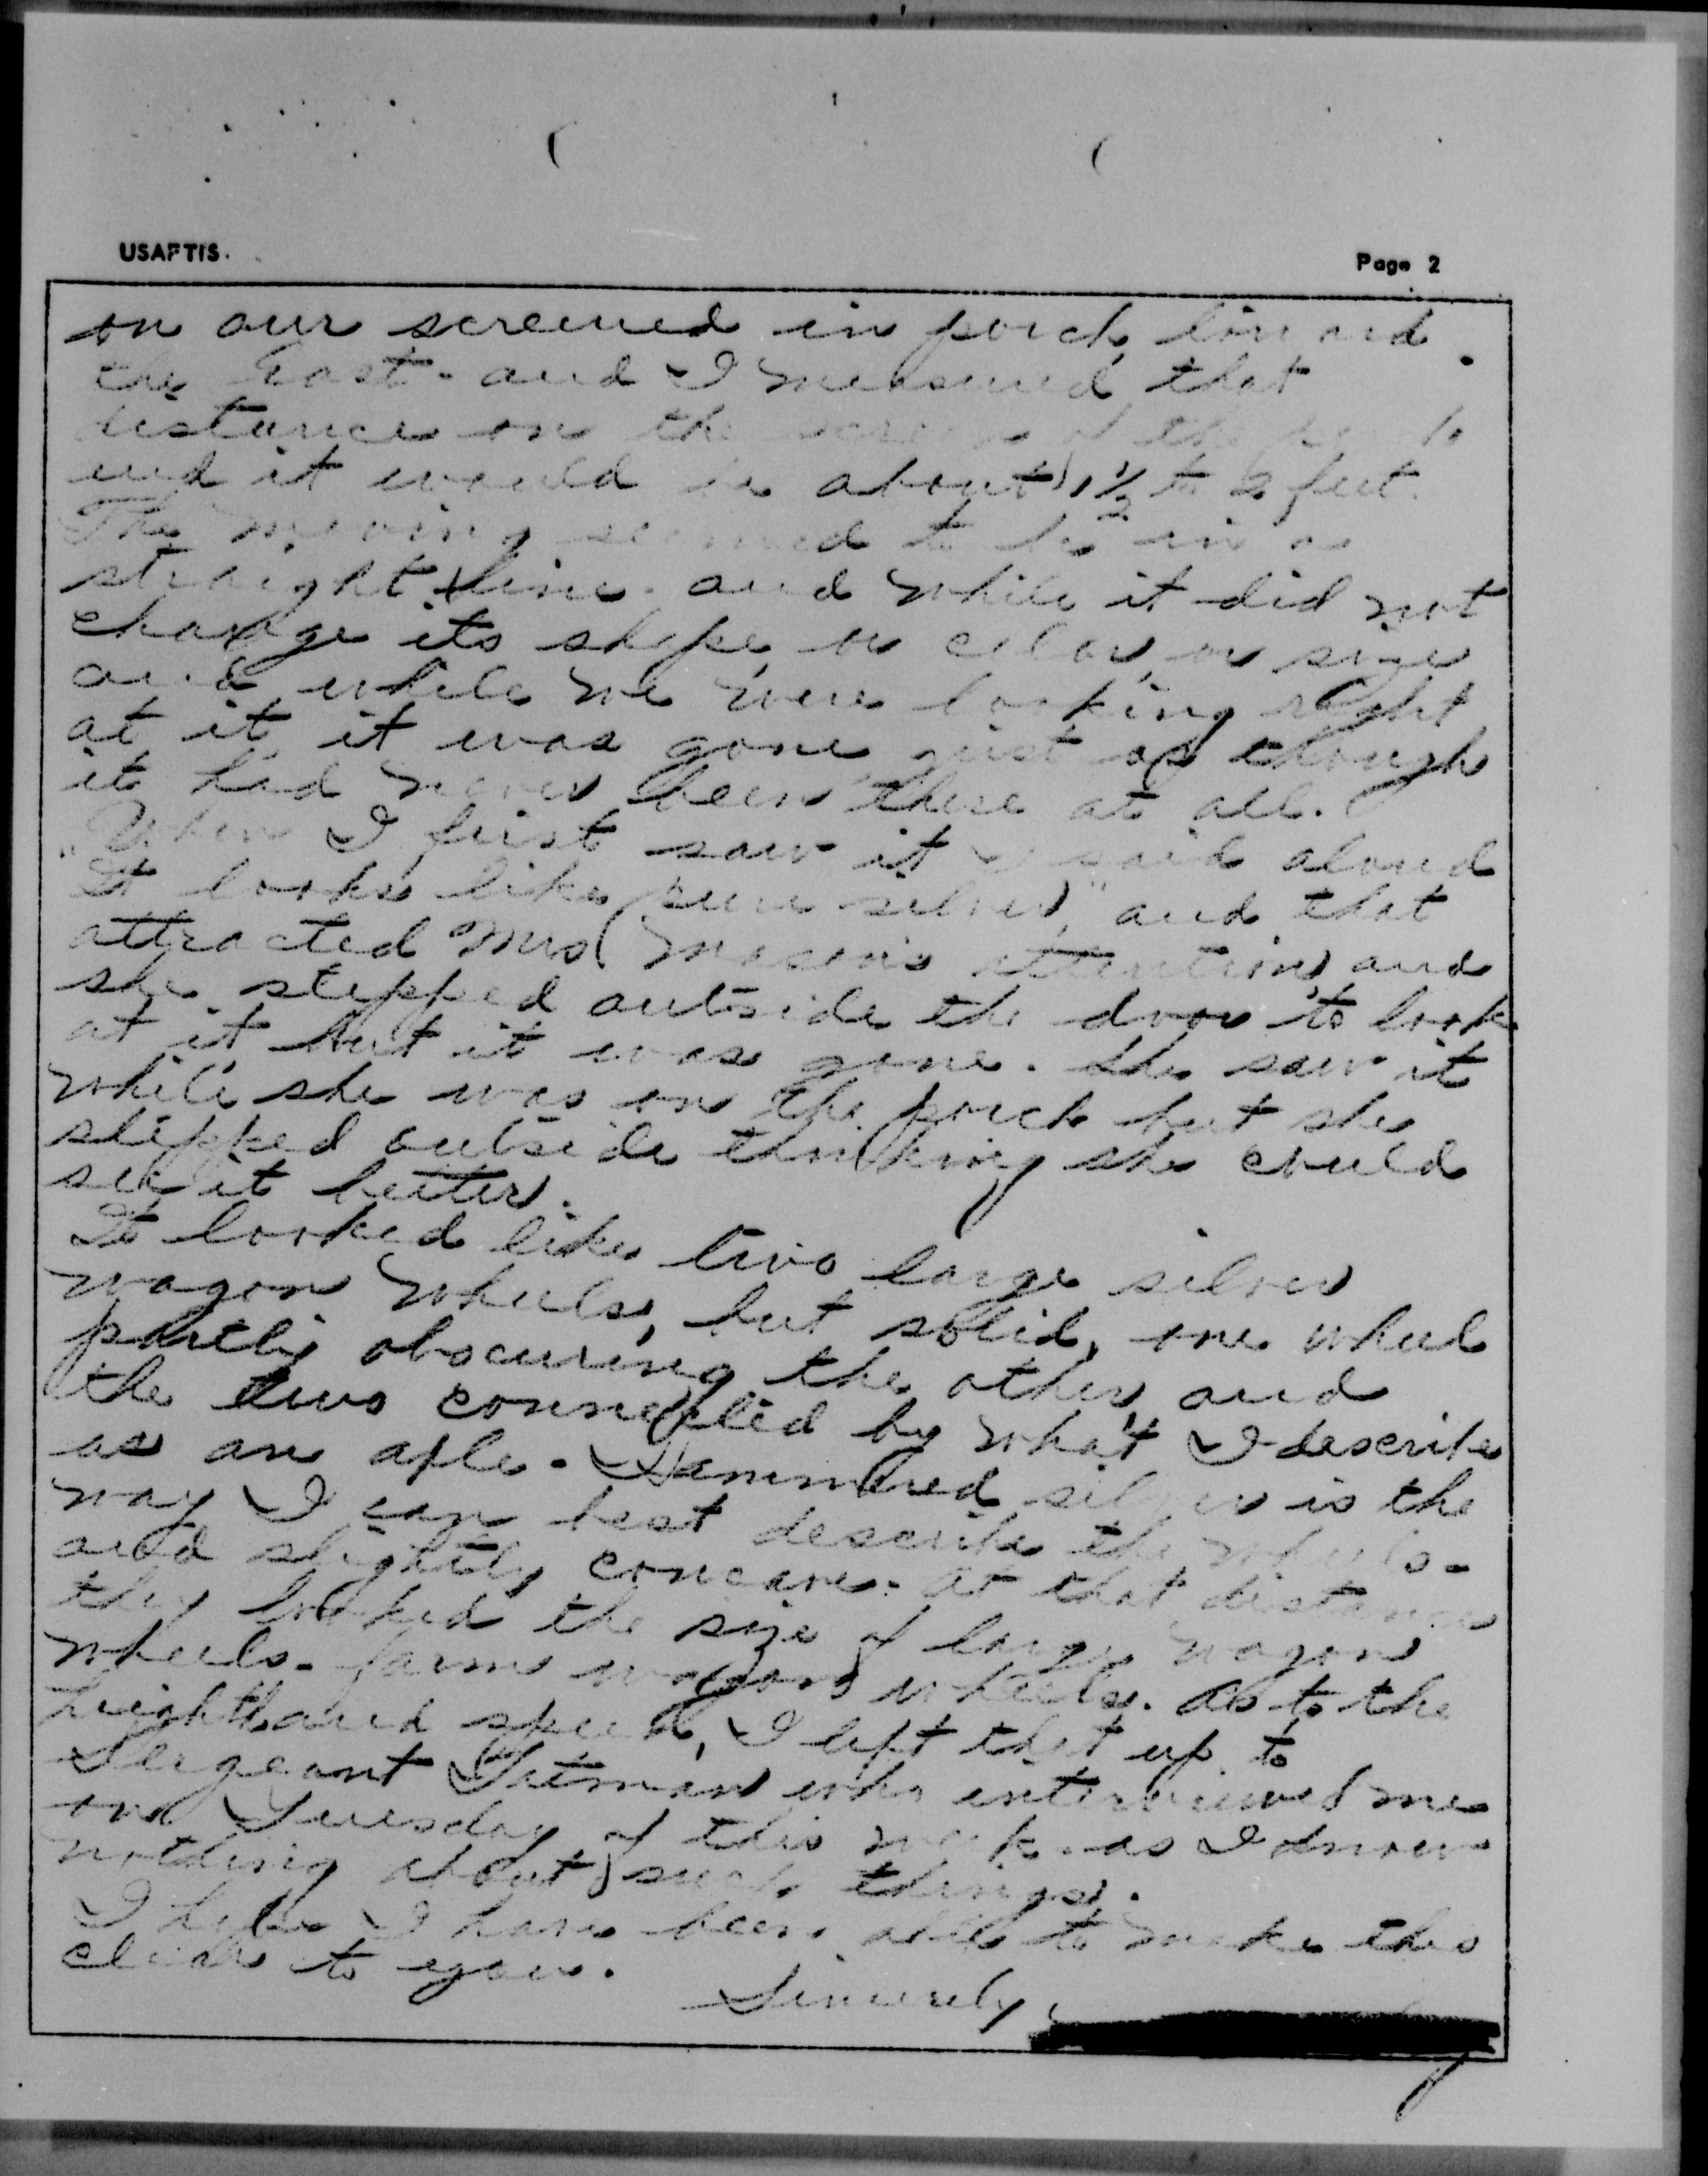 USAFTIS.
Page 2
on our screened in porch toward
the East - and I measured that
distance on the screen of the
and it would be about 1 1/2 to 2 feet.
The moving seemed to be in a
straight line and while it did not
change its shape, or color, or size
and while we were looking right
at it, it was gone just as though
it had never been there at all.
When I first saw it I said aloud
"It looks like pure silver," and that
attracted Mrs Mason's attention, and
she stepped outside the door to look
at it but it was gone. She saw it
while she was on the porch but she
stepped outside thinking she could
see it better.
It looked like two large silver
wagon wheels, but solid, one wheel
partly obscuring the other and
the two connected by what I describe
as an axle. Hammered silver is the
way I can best describe the wheels -
and slightly concave. At that distance
they looked the size of large wagon
wheels - farm wagon wheels. As to the
height and speed, I left that up to
Sergeant who interviewed me
on Tuesday of this week as I know
nothing about such things.
I hope I have been able to make this
clear to you.
Sincerely,